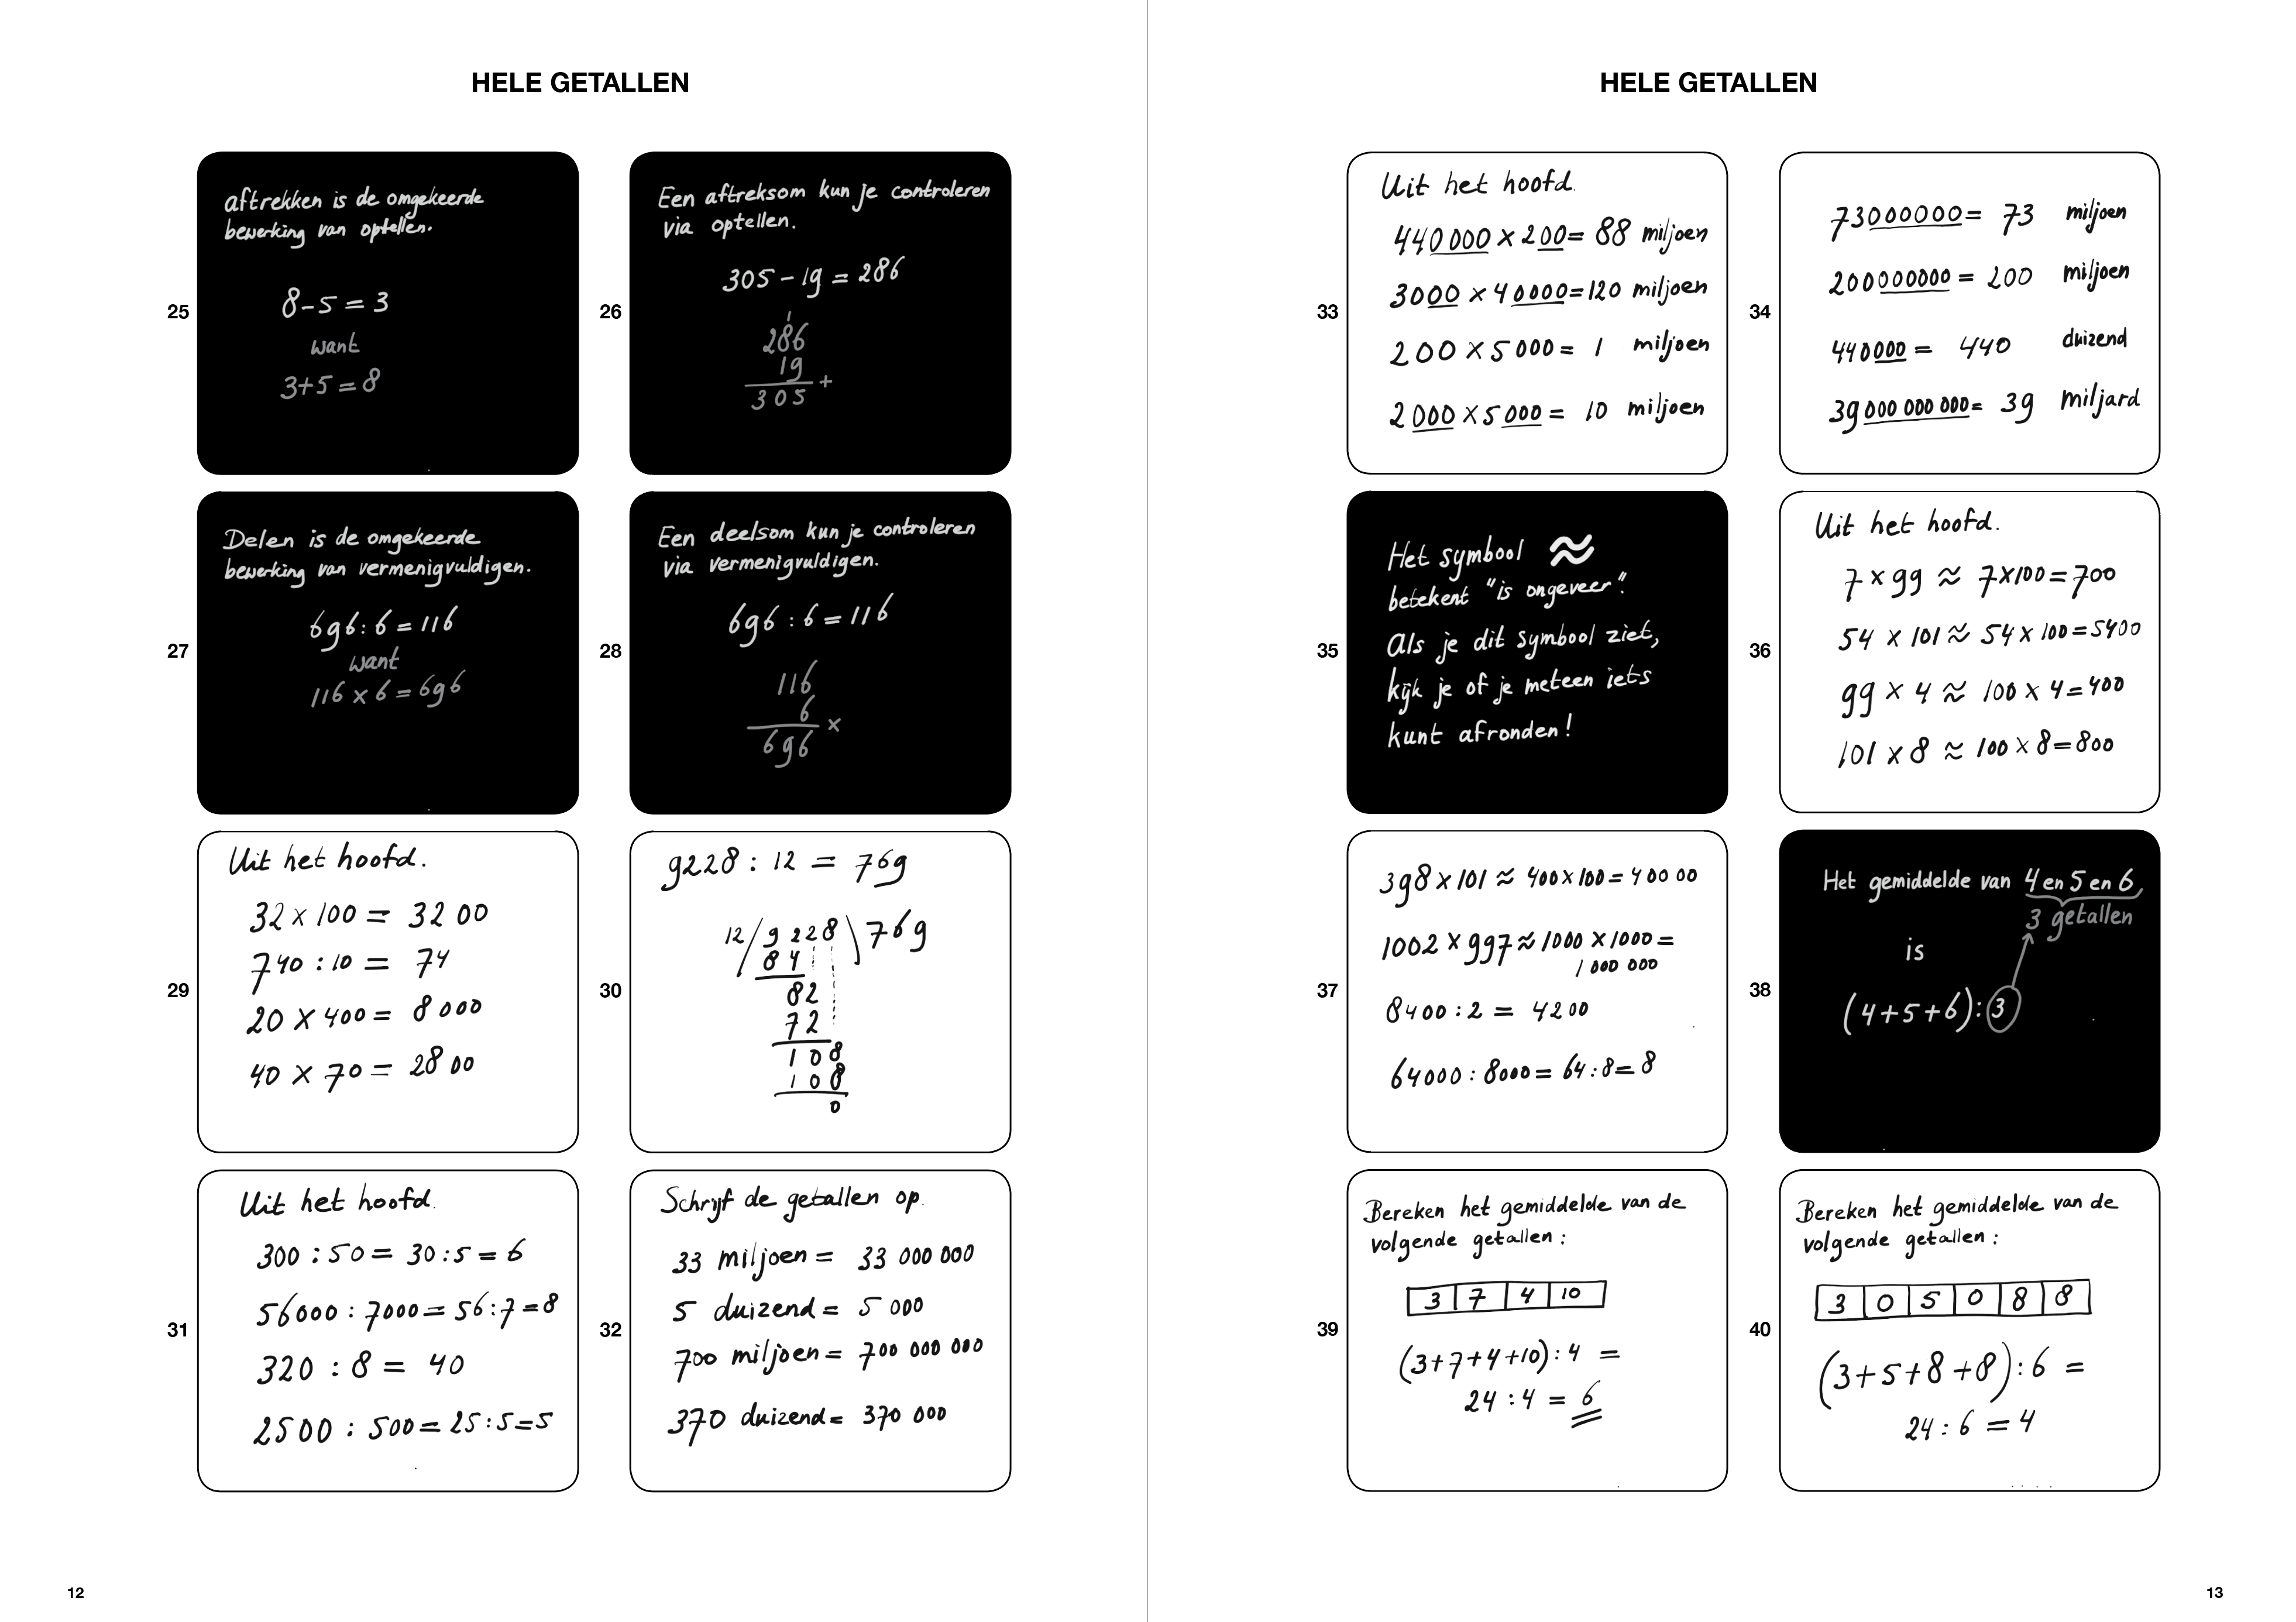 HELE GETALLEN
25
aftrekken is de omgekeerde
bewerking van optellen.
8-5=3
want
3+5=8
26
Een aftreksom kun je controleren
via optellen.
305-19=286
1
286
19
305 +
27
Delen is de omgekeerde
bewerking van vermenigvuldigen.
696:6=116
want
116 x 6=696
28
Een deelsom kun je controleren
via vermenigvuldigen.
696:6=116
116
6
x
696
29
Uit het hoofd.
32 x 100 = 3200
740:10 = 74
20 x 400 = 8000
40 x 70 = 2800
30
9228 : 12 = 769
12/9228\769
84
82
72
108
108
0
31
Uit het hoofd.
300 : 50 = 30:5 = 6
56000 : 7000 = 56:7=8
320 : 8 = 40
2500 : 500 = 25:5=5
32
Schrijf de getallen op.
33 miljoen = 33 000 000
5 duizend = 5 000
700 miljoen = 700 000 000
370 duizend = 370 000
12
HELE GETALLEN
33
Uit het hoofd.
440 000 x 200 = 88 miljoen
3000 x 40000=120 miljoen
200 x 5000 = 1 miljoen
2000 x 5000 = 10 miljoen
34
73000000 = 73 miljoen
200000000 = 200 miljoen
440000 = 440 duizend
39 000 000 000 = 39 miljard
35
Het symbool ≈
betekent "is ongeveer".
Als je dit symbool ziet,
kijk je of je meteen iets
kunt afronden!
36
Uit het hoofd.
7 x 99 ≈ 7x100=700
54 x 101 ≈ 54 x 100=5400
99 x 4 ≈ 100 x 4=400
101 x 8 ≈ 100 x 8=800
37
398 x 101 ≈ 400x100=40000
1002 x 997 ≈ 1000 x 1000 =
1 000 000
8400:2 = 4200
64000 : 8000 = 64:8=8
38
Het gemiddelde van 4 en 5 en 6,
3 getallen
is
(4+5+6):3
39
Bereken het gemiddelde van de
volgende getallen :
3 7 4 10
(3+7+4+10):4 =
24:4 = 6
40
Bereken het gemiddelde van de
volgende getallen :
3 0 5 0 8 8
(3+5+8+8):6 =
24:6 = 4
13